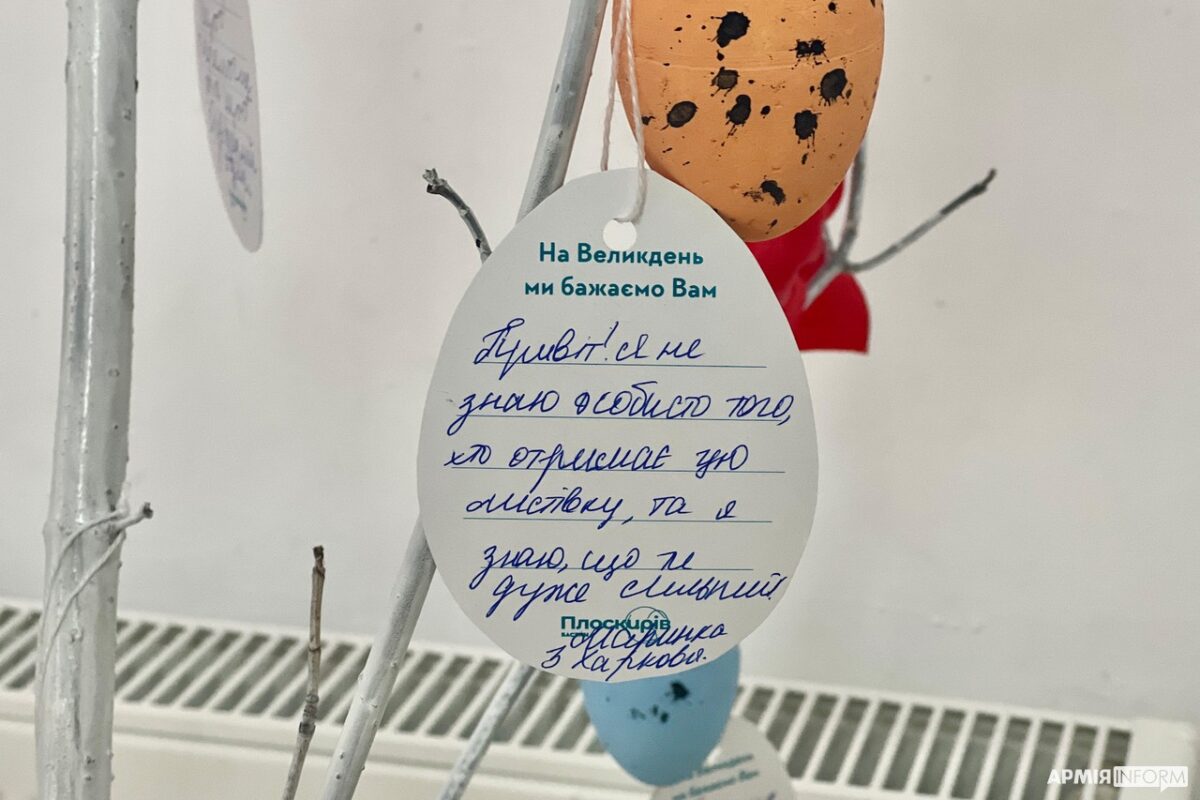 На Великдень
ми бажаємо Вам
Привіт! Я не
знаю особисто того,
хто отримає цю
листівку, та я
знаю, що ти
дуже сильний
Плоскирів
Маринка
З Харкова.
На Великдень
ми бажаємо Вам
АРМІЯINFORM